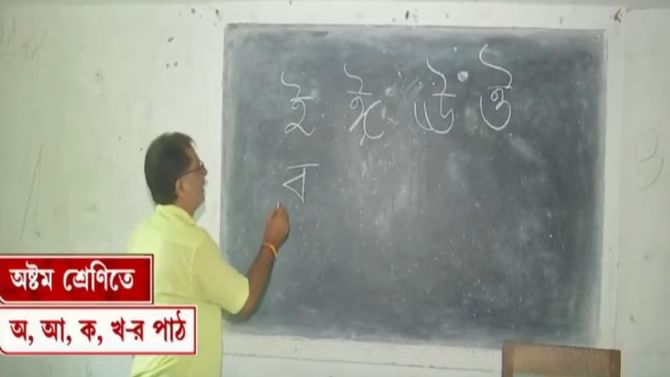 ই ঈ ঊ ঔ
ব
অষ্টম শ্রেণিতে
অ, আ, ক, খ-র পাঠ